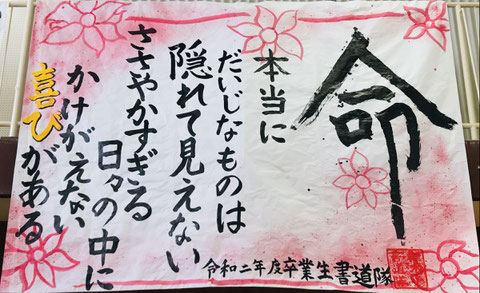 命
本当に
だいじなものは
隠れて見えない
ささやかすぎる
日々の中に
かけがえない
喜びがある
令和二年度卒業生書道隊